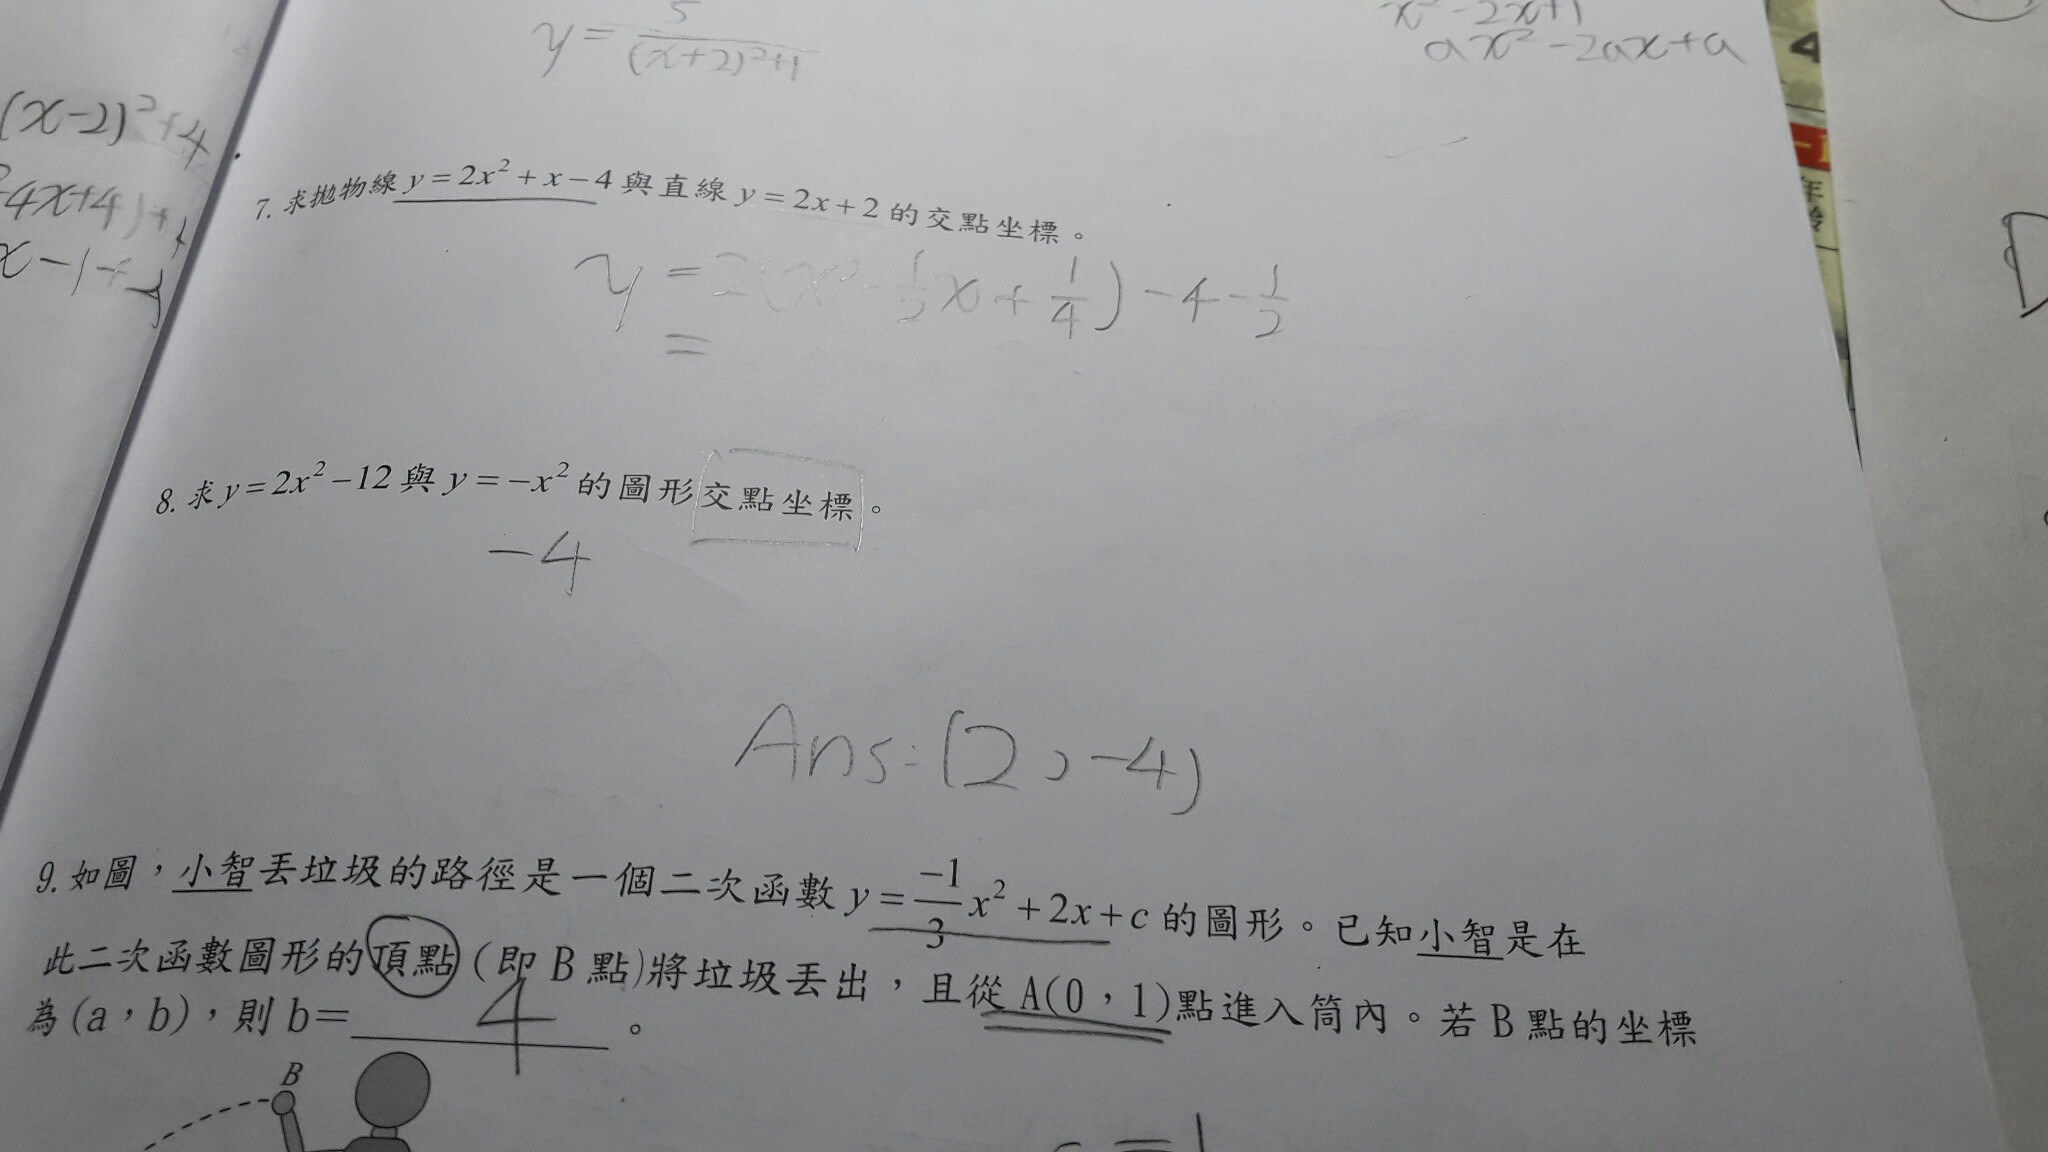 y = 5/((x+2)²+1)
x²-2x+1
ax²-2ax+a
(x-2)²+4
4x+4)+
x-1+
7. 求拋物線 y=2x²+x-4 與直線 y=2x+2 的交點坐標。
y = 2(x²-1/2x+1/4)-4-1/2
=
8. 求 y=2x²-12 與 y=-x² 的圖形交點坐標。
-4
Ans:(2,-4)
9. 如圖,小智丟垃圾的路徑是一個二次函數 y=-1/3x²+2x+c 的圖形。已知小智是在
此二次函數圖形的頂點(即 B 點)將垃圾丟出,且從 A(0,1)點進入筒內。若 B 點的坐標
為(a,b),則 b= 4 。
B